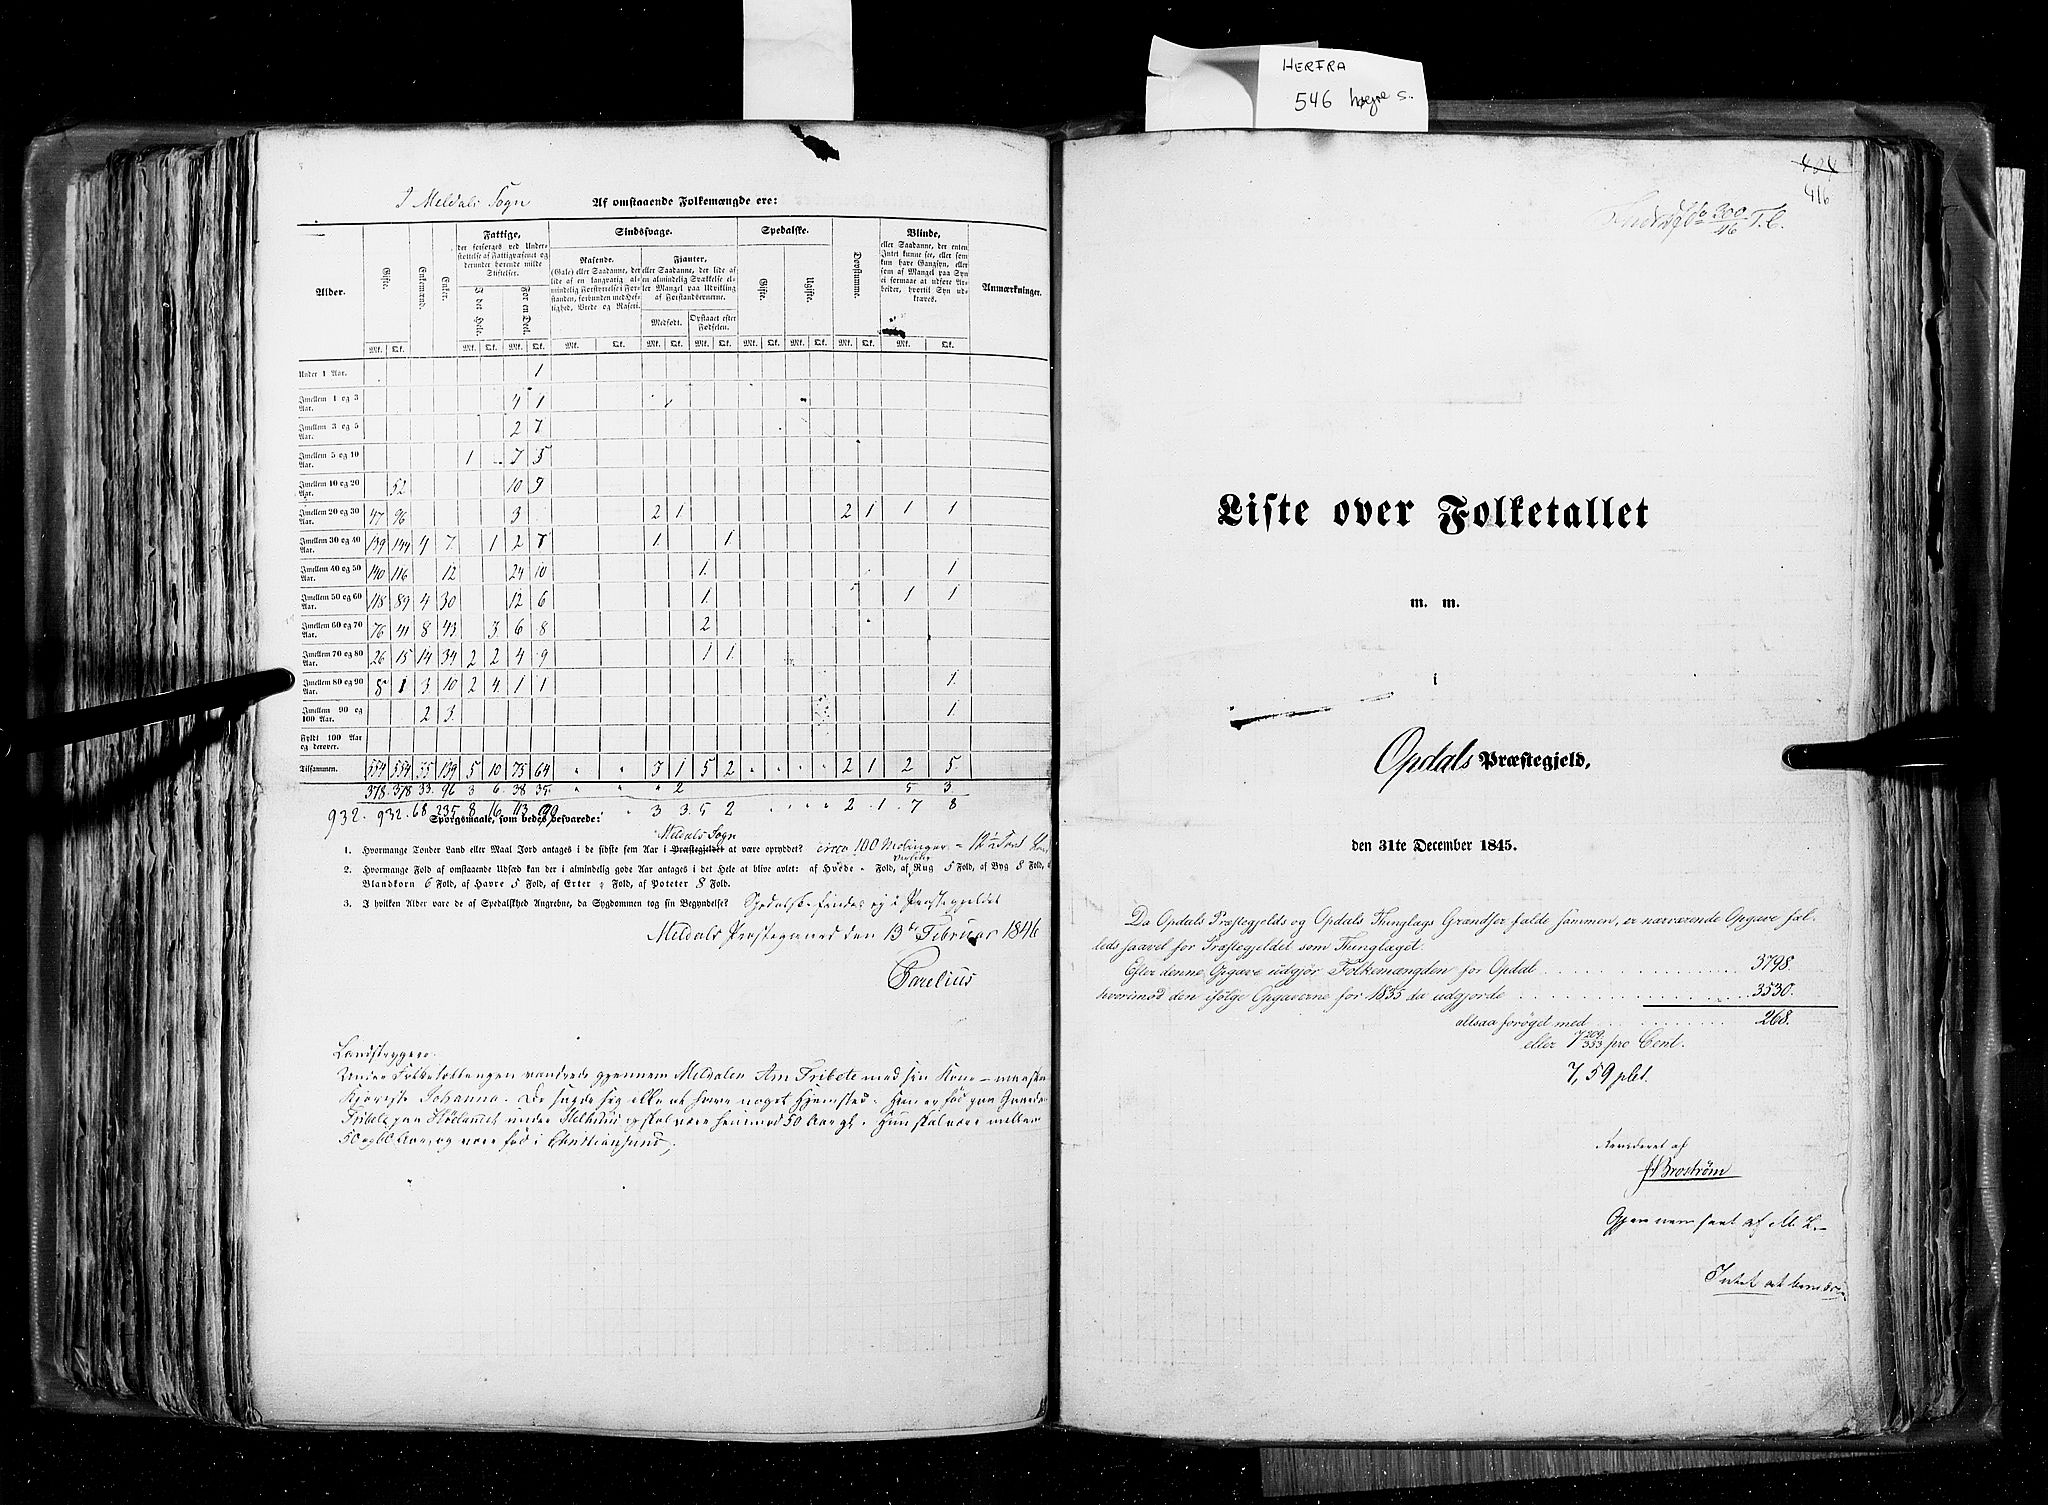 HERFRA
546 høgre s.
I Meldals Sogn
Af omstaaende Folkemængde ere:
Alder.
Gifte.
Enkemænd.
Enker.
Fattige,
der forsørges ved Under-
støttelse af Fattigvæsenet og
derunder hørende milde
Stiftelser.
I det Hele.
For en Deel.
Sindssvage.
Rasende.
(Gale) eller Saadanne, der
lide af en langvarig al-
mindelig Forstyrrelse i For-
standen, forbunden med Hef-
tighed, Vrede og Raseri.
Fjanter,
eller Saadanne, der lide af
en almindelig Svækkelse el-
ler Mangel paa Udvikling
af Forstandsevnerne.
Medfødt.
Opstaaet efter
Fødselen.
Spedalske.
Gifte.
Ugifte.
Døvstumme.
Blinde,
eller Saadanne, der enten
Intet kunne see, eller som
kun have Gangsyn, eller
som af Mangel paa Syn
ei formaae at udføre Ar-
beider, hvortil Syn ud-
kræves.
Anmærkninger.
Mk. Qk. Mk. Qk. Mk. Qk. Mk. Qk. Mk. Qk. Mk. Qk. Mk. Qk. Mk. Qk. Mk. Qk. Mk. Qk.
Under 1 Aar. 1
Imellem 1 og 3 Aar. 4 1
Imellem 3 og 5 Aar. 2 7
Imellem 5 og 10 Aar. 1 7 5
Imellem 10 og 20 Aar. 52 10 9
Imellem 20 og 30 Aar. 47 96 3 2 1 2 1 1 1
Imellem 30 og 40 Aar. 139 144 4 7 1 2 7 1 1
Imellem 40 og 50 Aar. 140 116 12 24 10 1 1
Imellem 50 og 60 Aar. 118 89 4 30 12 6 1 1 1
Imellem 60 og 70 Aar. 76 41 8 43 3 6 8 2
Imellem 70 og 80 Aar. 26 15 14 34 2 2 4 9 1 1
Imellem 80 og 90 Aar. 8 1 3 10 2 4 1 1 1
Imellem 90 og 100 Aar. 2 3 1
Fyldt 100 Aar og derover.
Tilsammen. 554 554 35 139 5 10 75 64 " " 3 1 5 2 " " " " 2 1 2 5
378. 378 33. 96 3 6. 38 35 " " " 2 5 3
932. 932. 68. 235 8 16 113 99 3 3. 5 2 2 1 7 8
Spørgsmaale, som bedes besvarede:
Meldals Sogn
1. Hvormange Tønder Land eller Maal Jord antages i de sidste fem Aar i Præstegjeldet at være opryddet? circa 100 Mælinger =
2. Hvormange Fold af omstaaende Udsæd kan der i almindelig gode Aar antages i det Hele at blive avlet: af Hvede - Fold, af Rug 5 Fold, af Byg 8 Fold,
Blandkorn 6 Fold, af Havre 5 Fold, af Erter " Fold, af Poteter 8 Fold.
3. I hvilken Alder vare de af Spedalskhed Angrebne, da Sygdommen tog sin Begyndelse? Spedalske findes ej i Præstegjeldet
Meldals Præstegaard den 13de Februar 1846
Barelius
Landstrygere.
Under Folketællingen vandrede gjennem Meldalen Am Tribete med sin Kone - maaske
Kjæreste Johanna. De sagde sig ikke at have noget Hjemsted. Han er født paa Gaarden
50 og 60 Aar, og være fød i Christiansund;
424
416
300/46 T.C.
Liste over Folketallet
m. m.
i
Opdals Præstegjeld,
den 31te December 1845.
Da Opdals Præstegjelds og Opdals Thinglags Grændser falde sammen, er nærværende Opgave fæl-
leds saavel for Præstegjeldet som Thinglaget.
Efter denne Opgave udgjør Folkemængden for Opdal . . . . . . 3798.
hvorimod den ifølge Opgaverne for 1835 da udgjorde . . . . . . 3530.
altsaa forøget med . . . . . . 268.
eller 7 209/353 pro Cent.
7,59 pCt.
Revideret af
Broström
Gjennemseet af M. L.
Intet at bemærke